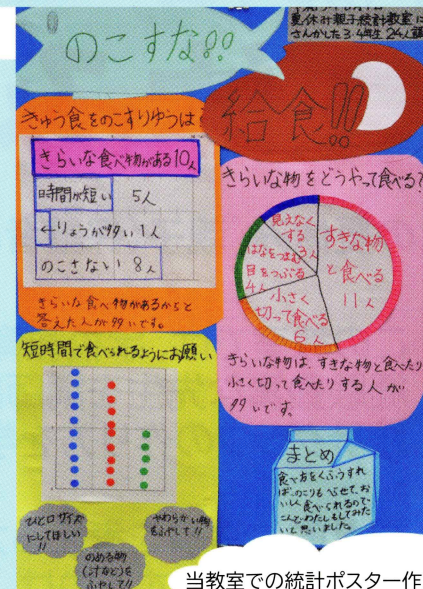 夏休み親子統計教室に
さんかした3.4年生24人
のこすな!!
給食!!
きゅう食をのこすりゆうは
きらいな食べ物がある10人
時間が短い 5人
←りょうが多い 1人
のこさない 8人
きらいな食べ物があるからと
答えた人が多いです。
きらいな物をどうやって食べる?
すきな物
と食べる
11人
小さく
切って食べる
6人
はなをつまむ
目をつぶる
4人
見えなく
する
3人
きらいな物は、すきな物と食べたり
小さく切って食べたりする人が
多いです。
短時間で食べられるようにお願い
ひと口サイズ
にしてほしい
!!
のめる物
(汁など)を
ふやして!!
やわらかい物
をふやして!!
まとめ
食べ方をくふうすれ
ば、のこりもへらせて、お
いしく食べられるので
こんどわたしもしてみた
いと思いました。
当教室での統計ポスター作